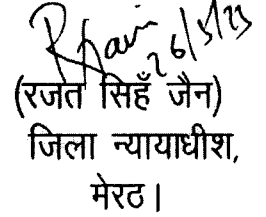 26/5/23
(रजत सिहँ जैन)
जिला न्यायाधीश,
मेरठ।